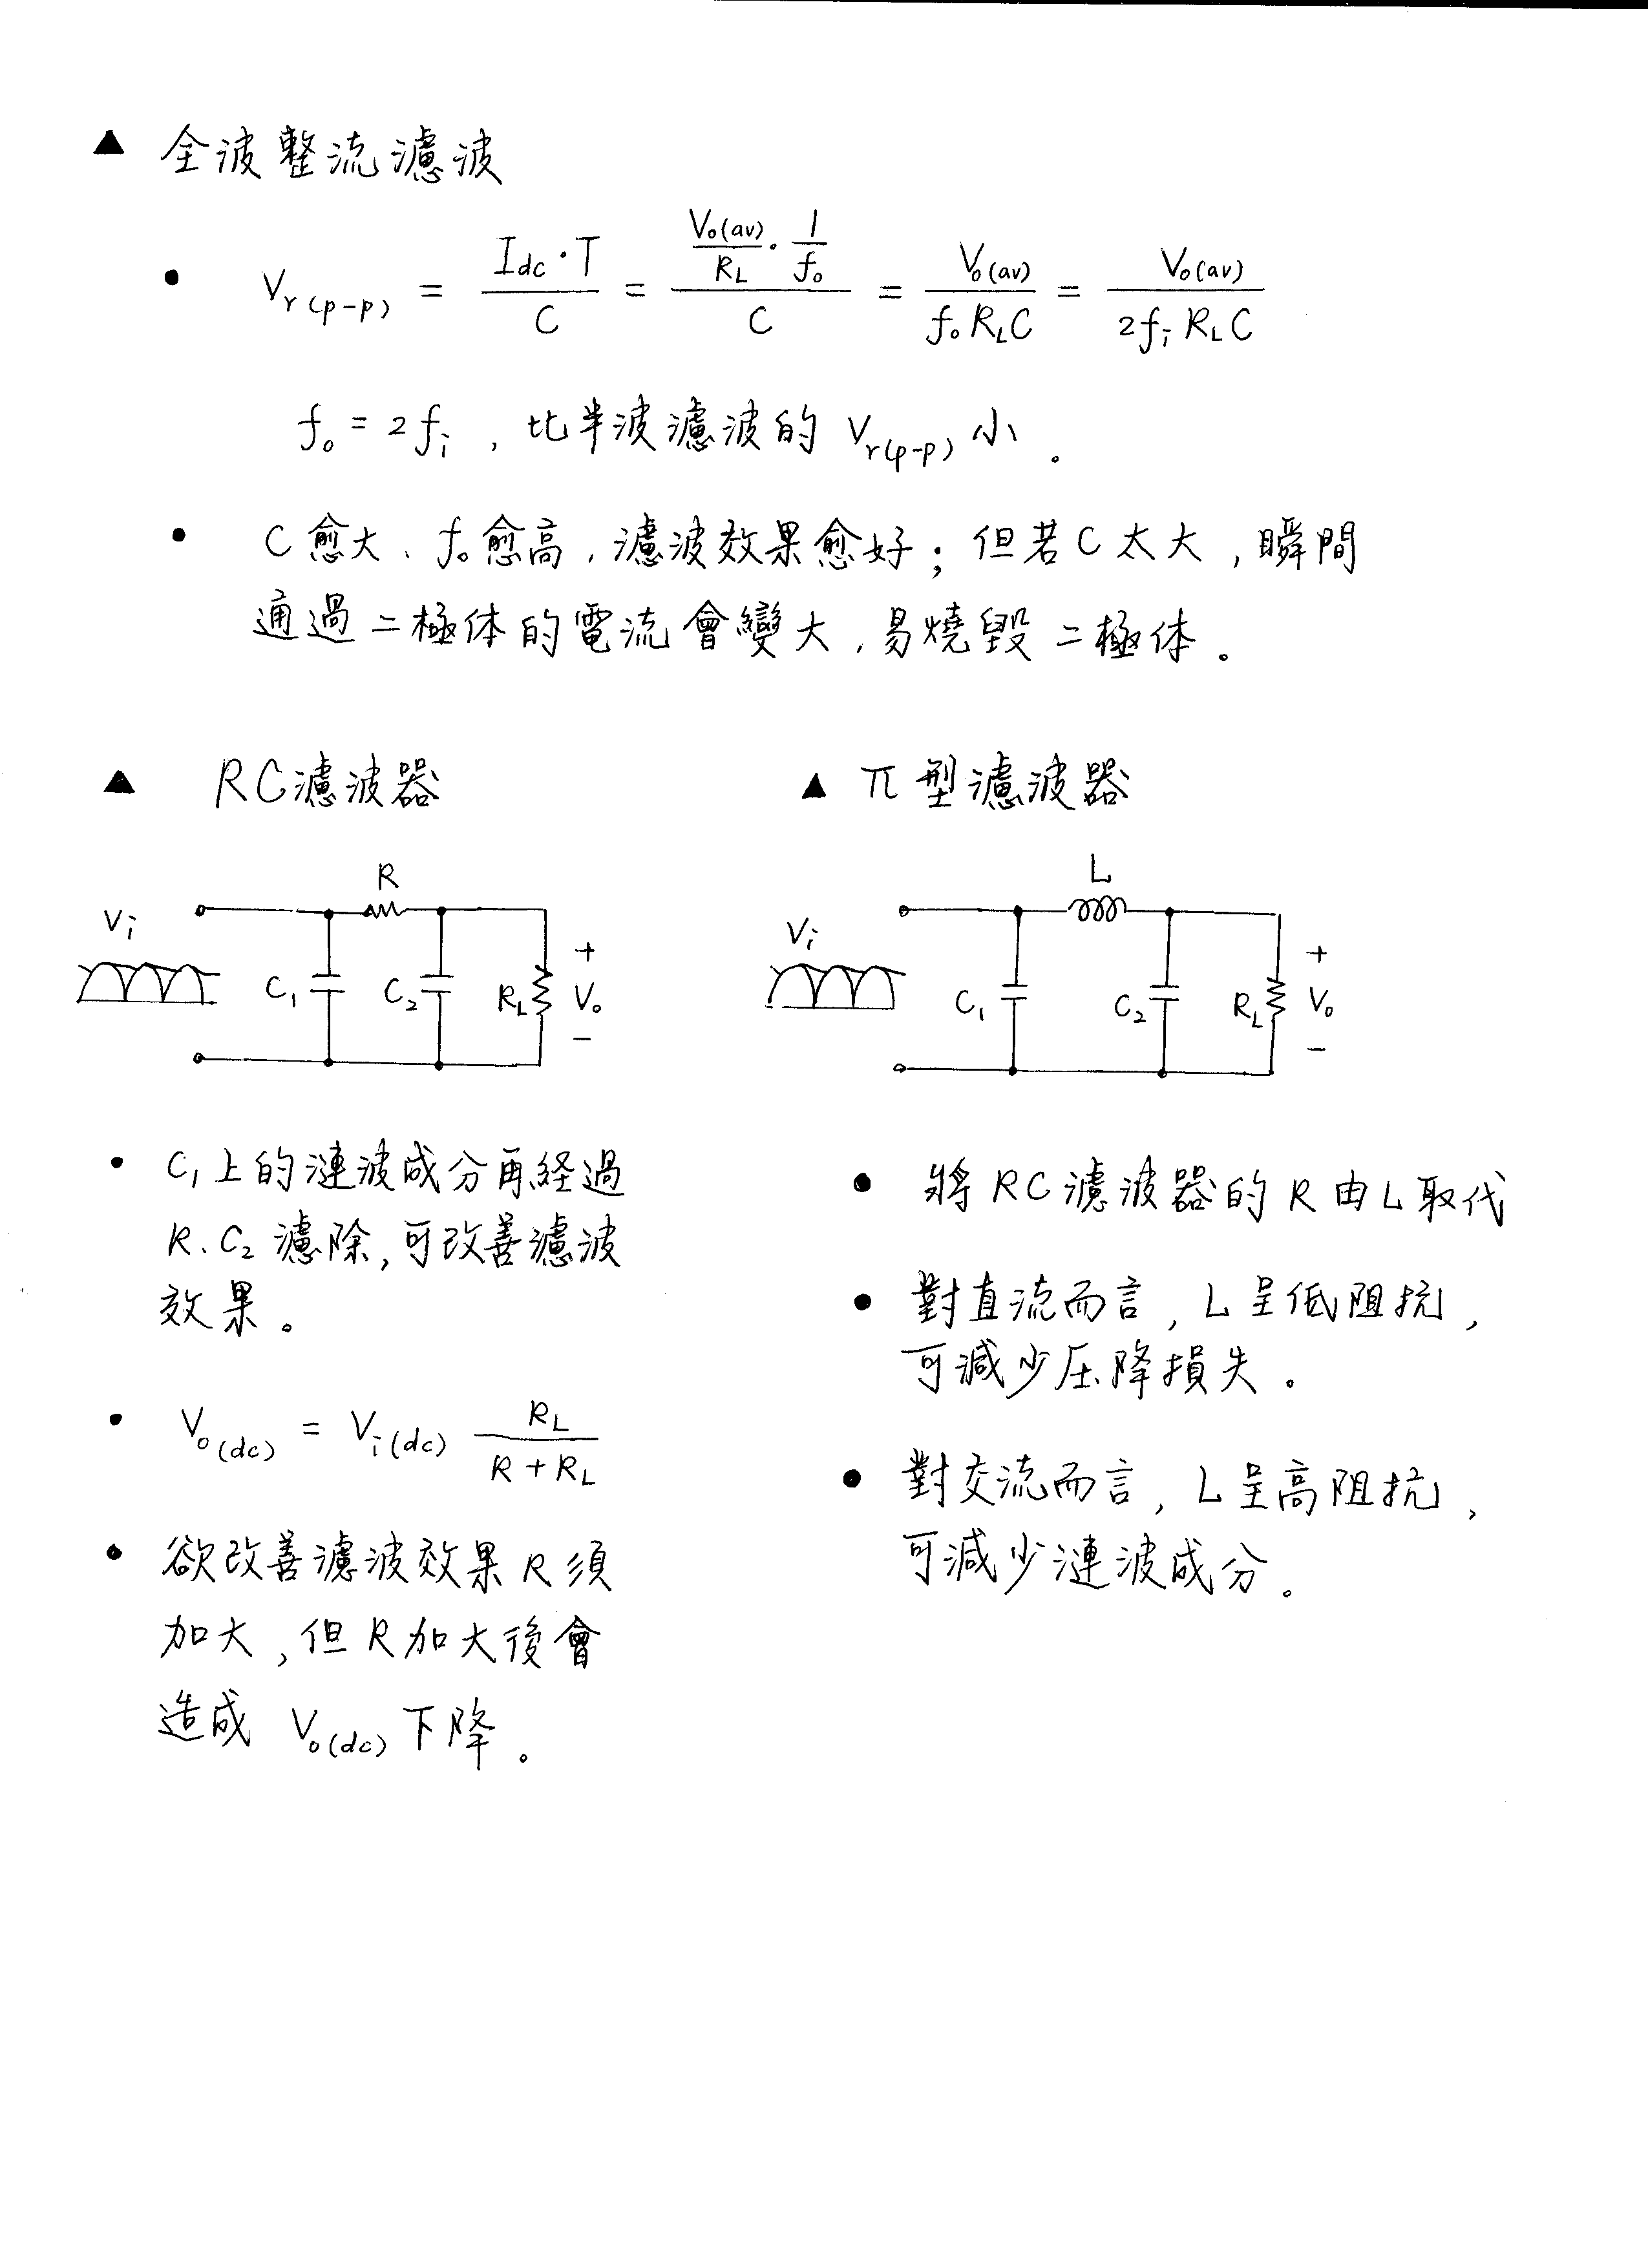 ▲ 全波整流濾波
• Vr(p-p) = (Idc·T)/C = (Vo(av)/RL · 1/fo)/C = Vo(av)/(fo RL C) = Vo(av)/(2fi RL C)
fo = 2fi , 比半波濾波的 Vr(p-p) 小。
• C愈大、fo愈高,濾波效果愈好;但若C太大,瞬間
通過二極体的電流會變大,易燒毀二極体。
▲ RC濾波器
R
Vi
C1
C2
RL
+
Vo
−
• C1上的漣波成分再経過
R、C2 濾除,可改善濾波
效果。
• Vo(dc) = Vi(dc) RL/(R+RL)
• 欲改善濾波效果R須
加大,但R加大後會
造成 Vo(dc)下降。
▲ π型濾波器
L
Vi
C1
C2
RL
+
Vo
−
• 將RC濾波器的R由L取代
• 對直流而言,L呈低阻抗,
可減少压降損失。
• 對交流而言,L呈高阻抗,
可減少漣波成分。